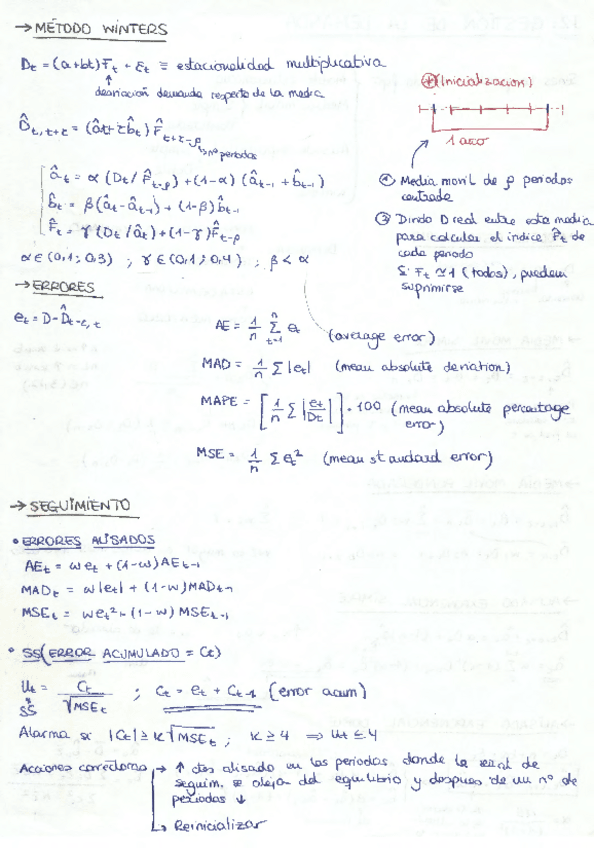 → MÉTODO WINTERS
Dt = (a+bt)Ft + Et ≡ estacionalidad multiplicativa
↑
desviación demanda respecto de la media
D̂t,t+τ = (ât + τb̂t) F̂t+τ-ρ
↳ nº periodos
ât = α (Dt / F̂t-ρ) + (1-α) (ât-1 + b̂t-1)
b̂t = β(ât - ât-1) + (1-β) b̂t-1
F̂t = γ (Dt / ât) + (1-γ) F̂t-ρ
α ∈ (0,1 ; 0,3) ; γ ∈ (0,1 ; 0,4) ; β < α
(Inicialización)
1 año
① Media movil de ρ periodos
centrada
② Divido D real entre esta media
para calcular el índice F̂t de
cada periodo
Si Ft ≃ 1 (todos), pueden
suprimirse
→ ERRORES
et = D - D̂t-τ, t
AE = 1/n Σ et (average error)
MAD = 1/n Σ |et| (mean absolute deviation)
MAPE = [1/n Σ |et/Dt|] · 100 (mean absolute percentage
error)
MSE = 1/n Σ et² (mean standard error)
→ SEGUIMIENTO
• ERRORES ALISADOS
AEt = w et + (1-w) AEt-1
MADt = w |et| + (1-w) MADt-1
MSEt = w et² + (1-w) MSEt-1
• SS (ERROR ACUMULADO = Ct)
Ut = Ct / √MSEt ; Ct = et + Ct-1 (error acum)
SS
Alarma si |Ct| ≥ K √MSEt ; K ≥ 4 ⇒ Ut ≤ 4
Acciones correctoras → ↑ ctes alisado en los periodos donde la señal de
seguim. se aleja del equilibrio y despues de un nº de
periodos ↓
↳ Reinicializar